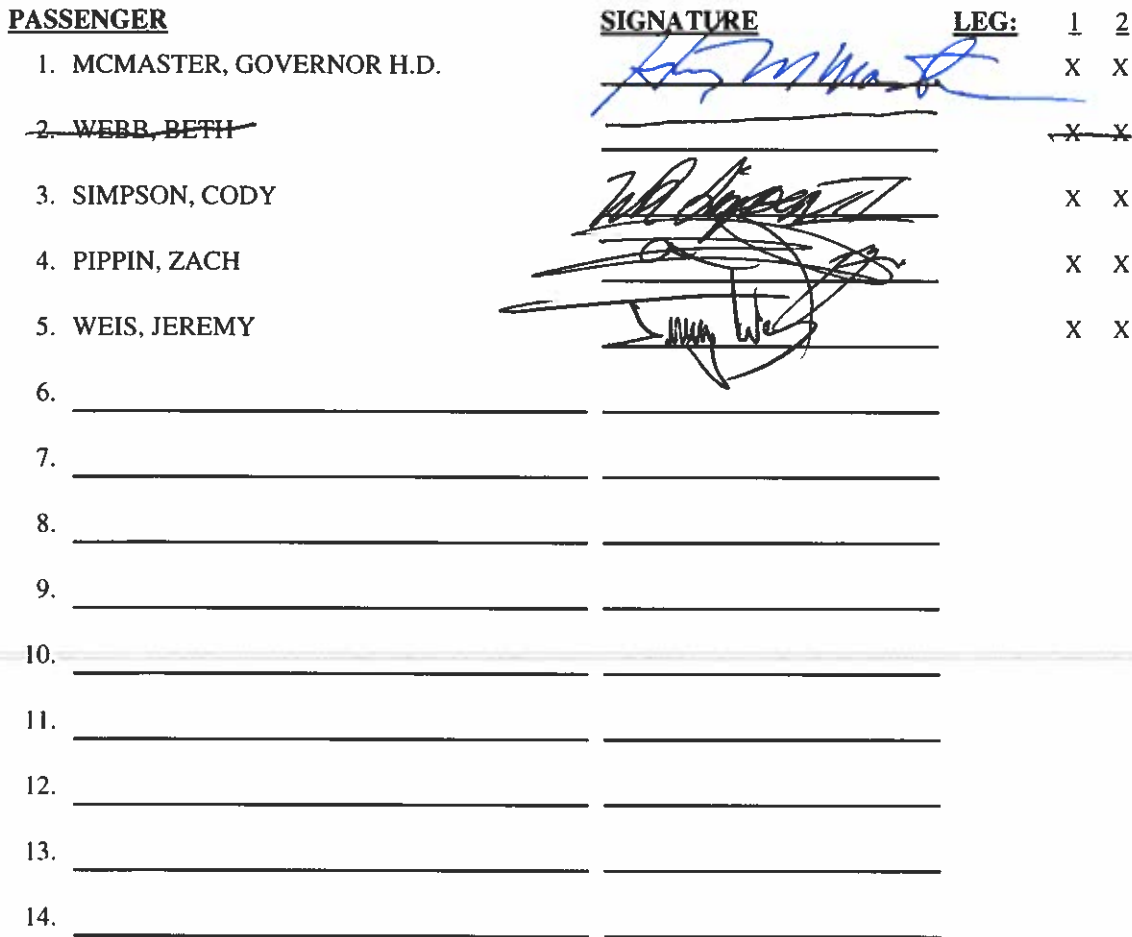 PASSENGER SIGNATURE LEG: 1 2
1. MCMASTER, GOVERNOR H.D. X X
2. WEBB, BETH X X
3. SIMPSON, CODY X X
4. PIPPIN, ZACH X X
5. WEIS, JEREMY X X
6.
7.
8.
9.
10.
11.
12.
13.
14.